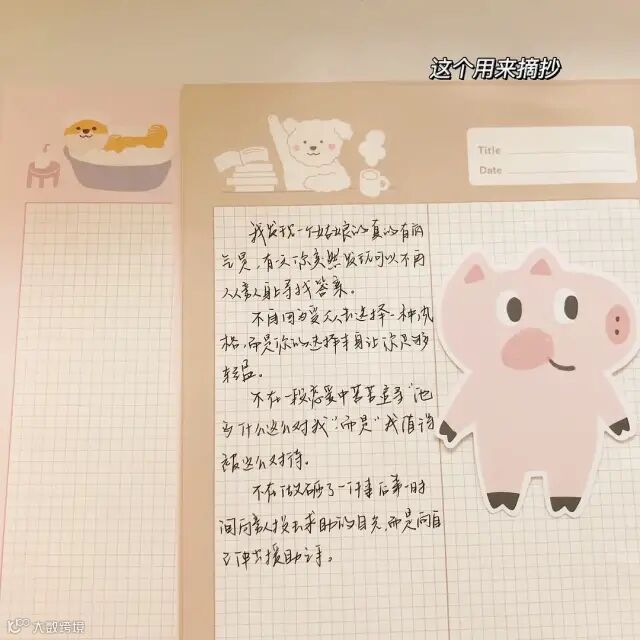 这个用来摘抄
Title
Date
我发现一个姑娘的真的有两
气是,有天你突然发现可以不再
从别人身上寻找答案。
不再因为受众去选择一种风
格,而是你的选择本身让你足够
轻盈。
不在一段恋爱中苦苦追寻"他
为什么这么对我",而是"我值得
被这么对待。
不在做砸了一件事后第一时
间向别人投去求助的目光,而是向自
己伸出援助之手。
大数跨境